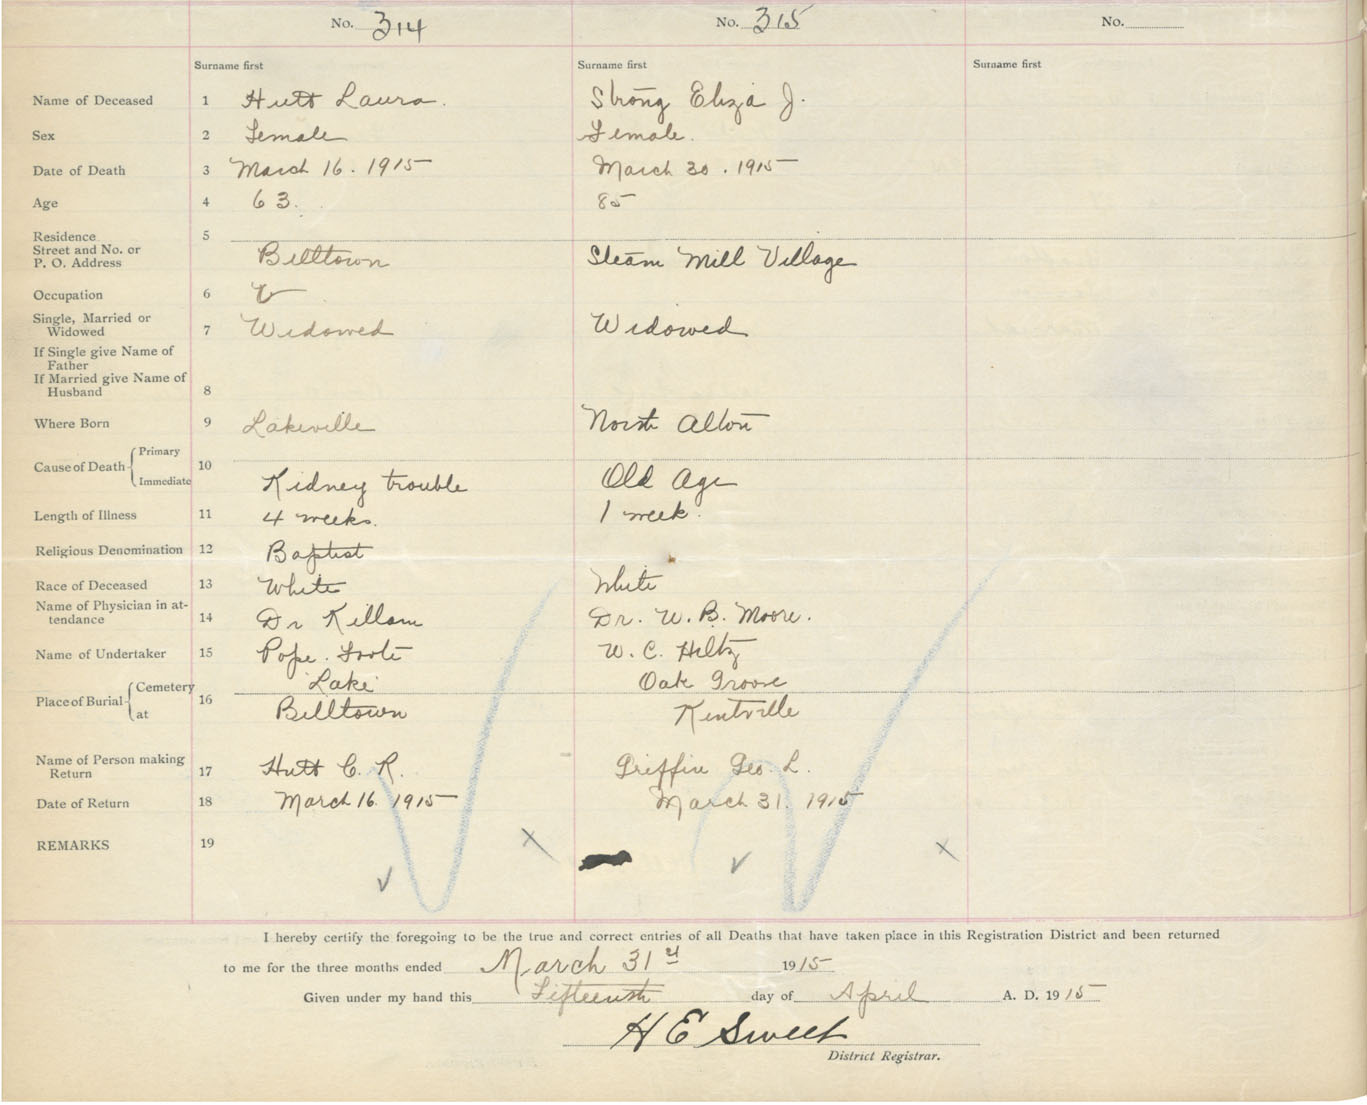 No. 314 No. 315 No.
Surname first Surname first Surname first
Name of Deceased 1 Hutt Laura. Strong Eliza J.
Sex 2 Female Female.
Date of Death 3 March 16. 1915 March 30. 1915
Age 4 63. 85
Residence 5
Street and No. or
P. O. Address Billtown Steam Mill Village
Occupation 6
Single, Married or
Widowed 7 Widowed Widowed
If Single give Name of
Father
If Married give Name of
Husband 8
Where Born 9 Lakeville North Alton
Cause of Death 10 Primary
Immediate Kidney trouble Old Age
Length of Illness 11 4 weeks. 1 week.
Religious Denomination 12 Baptist
Race of Deceased 13 White White
Name of Physician in at-
tendance 14 Dr Killam Dr. W. B. Moore.
Name of Undertaker 15 Pope. Foote W. C. Hiltz
Place of Burial 16 Cemetery Lake Oak Grove
at Billtown Kentville
Name of Person making
Return 17 Hutt C. R. Griffin Geo. L.
Date of Return 18 March 16. 1915 March 31. 1915
REMARKS 19
I hereby certify the foregoing to be the true and correct entries of all Deaths that have taken place in this Registration District and been returned
to me for the three months ended March 31st 1915
Given under my hand this Fifteenth day of April A. D. 1915
H E Sweet
District Registrar.